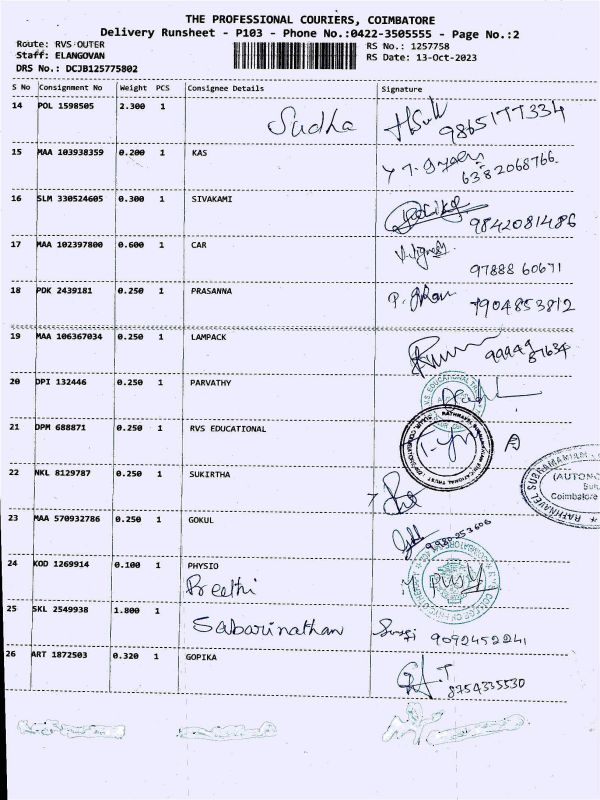 THE PROFESSIONAL COURIERS, COIMBATORE
Delivery Runsheet - P103 - Phone No.:0422-3505555 - Page No.:2
Route: RVS OUTER
RS No.: 1257758
Staff: ELANGOVAN
RS Date: 13-Oct-2023
DRS No.: DCJB125775802
S No Consignment No Weight PCS Consignee Details Signature
14 POL 1598505 2.300 1
Sudha 9865177334
15 MAA 103938359 0.200 1 KAS
6382068766
16 SLM 330524605 0.300 1 SIVAKAMI
9842081486
17 MAA 102397800 0.600 1 CAR
97888 60671
18 PDK 2439181 0.250 1 PRASANNA
7904853812
19 MAA 106367034 0.250 1 LAMPACK
99949 87634
20 DPI 132446 0.250 1 PARVATHY
21 DPM 688871 0.250 1 RVS EDUCATIONAL
22 NKL 8129787 0.250 1 SUKIRTHA
23 MAA 570932786 0.250 1 GOKUL
24 KOD 1269914 0.100 1 PHYSIO
Preethi
25 SKL 2549938 1.800 1
Sabarinathan 9092452241
26 ART 1872503 0.320 1 GOPIKA
8754335530